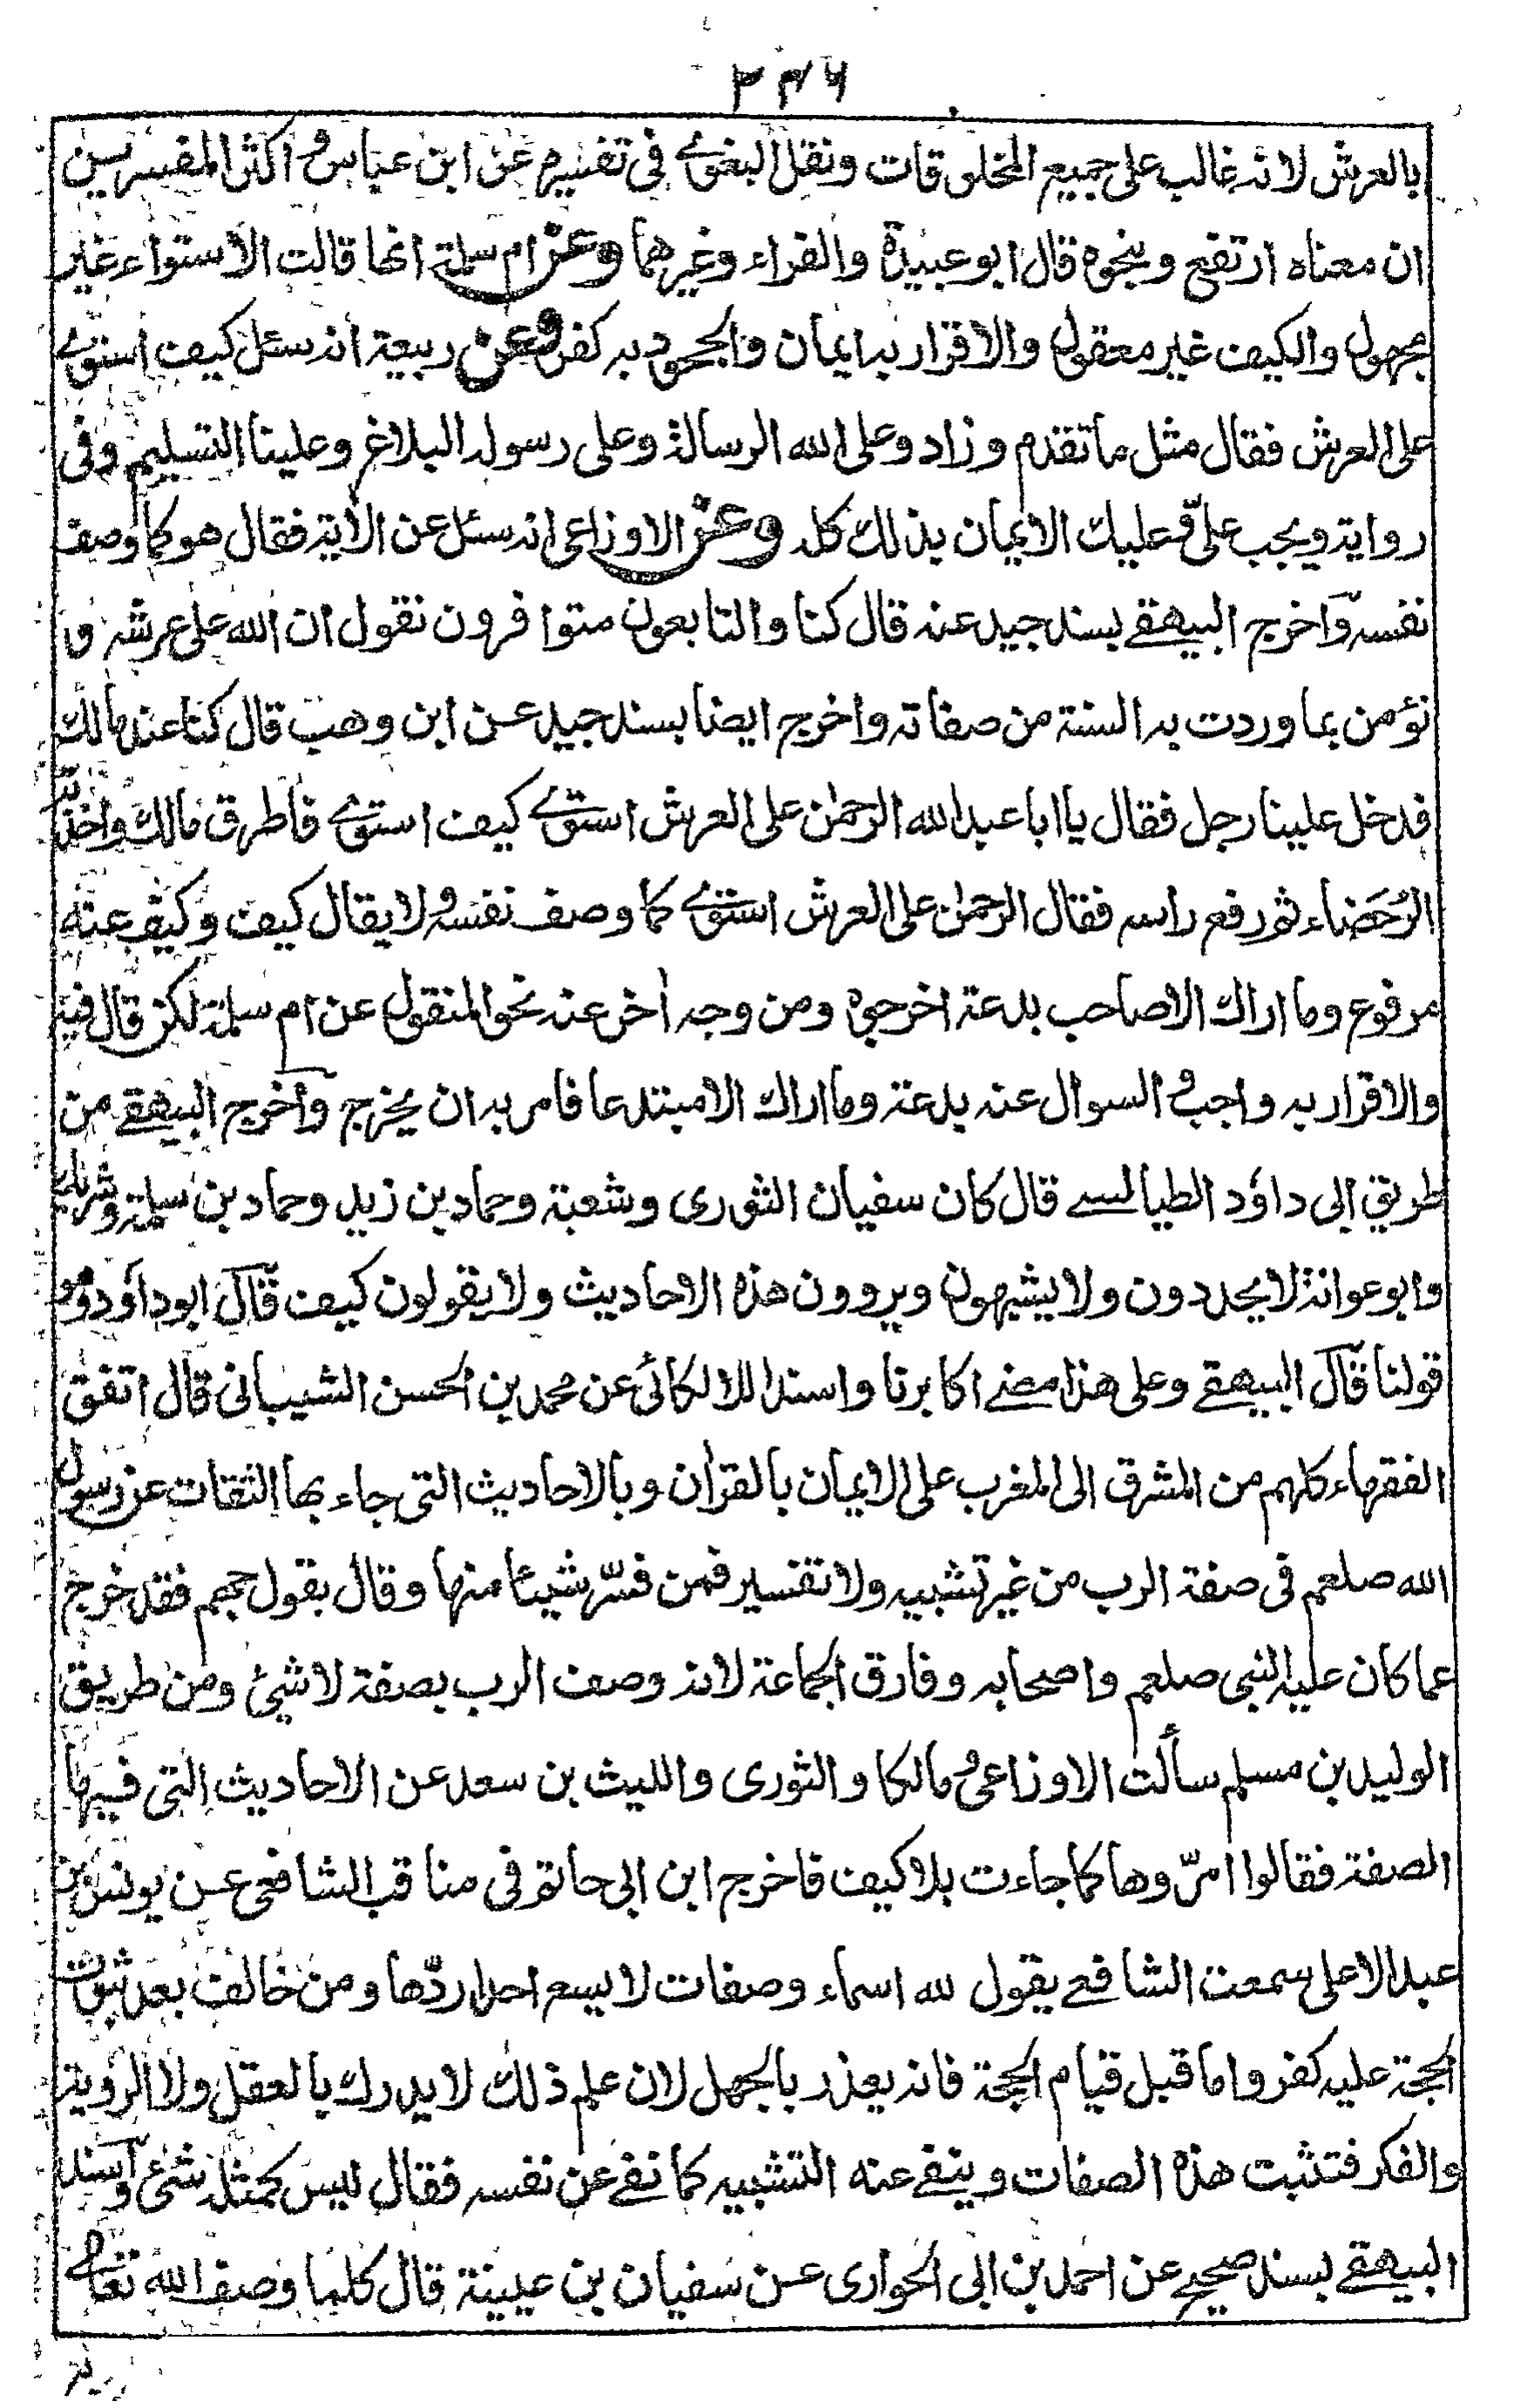 ٣٣٦
بالعرش لانه غالب على جميع المخلوقات ونقل البغوے فى تفسيره عن ابن عباس و اكثر المفسرين
ان معناه ارتفع وبنحوه قال ابو عبيدة والفراء وغيرهما وعن ام سلمة انها قالت الاستواء غير
مجهول والكيف غير معقول والاقرار به ايمان والجحود به كفر وعن ربيعة انه سئل كيف استوے
على العرش فقال مثل ما تقدم وزاد وعلى الله الرسالة وعلى رسوله البلاغ وعلينا التسليم وفى
رواية ويجب علىّ وعليك الايمان بذلك كله وعن الاوزاعى انه سئل عن الآية فقال هو كما وصف
نفسه وآخرج البيهقے بسند جيد عنه قال كنا والتابعون متوافرون نقول ان الله على عرشه و
نؤمن بما وردت به السنة من صفاته واخرج ايضا بسند جيد عن ابن وهب قال كنا عند مالك
فدخل علينا رجل فقال يا ابا عبد الله الرحمٰن على العرش استوے كيف استوے فاطرق مالك واخذته
الرُحَضاء ثم رفع راسه فقال الرحمٰن على العرش استوے كما وصف نفسه و لا يقال كيف وكيف عنه
مرفوع وما اراك الا صاحب بدعة اخرجوه ومن وجه اٰخر عنه نحو المنقول عن ام سلمة لكن قال فيه
والاقرار به واجب و السوال عنه بدعة وما اراك الا مبتدعا فامر به ان يخرج وآخرج البيهقے من
طريق ابى داؤد الطيالسے قال كان سفيان الثورى وشعبة وحماد بن زيد وحماد بن سلمة وشريك
وابو عوانة لا يحددون ولا يشبهون ويروون هذه الاحاديث ولا يقولون كيف قآل ابو داؤد وهو
قولنا قآل البيهقے وعلى هذا مضے اكابرنا واسند اللالكائى عن محمد بن الحسن الشيبانى قال اتفق
الفقهاء كلهم من المشرق الى المغرب على الايمان بالقراٰن وبالاحاديث التى جاء بها الثقات عن رسول
الله صلعم فى صفة الرب من غير تشبيه ولا تفسير فمن فسّر شيئا منها وقال بقول جهم فقد خرج
عما كان عليه النبى صلعم واصحابه وفارق الجماعة لانه وصف الرب بصفة لا شئ ومن طريق
الوليد بن مسلم سألت الاوزاعى و مالكا والثورى والليث بن سعد عن الاحاديث التى فيها
الصفة فقالوا امرّوها كما جاءت بلا كيف فاخرج ابن ابى حاتم فى مناقب الشافعى عن يونس بن
عبد الاعلى سمعت الشافعے يقول لله اسماء وصفات لا يسع احدا ردّها ومن خالف بعد ثبوت
الحجة عليه كفر واما قبل قيام الحجة فانه يعذر بالجهل لان علم ذلك لا يدرك بالعقل ولا الرؤية
والفكر فتثبت هذه الصفات وينفے عنه التشبيه كما نفے عن نفسه فقال ليس كمثله شئ وآسند
البيهقے بسند صحيح عن احمد بن ابى الحوارى عن سفيان بن عيينة قال كلما وصف الله تعالے
به